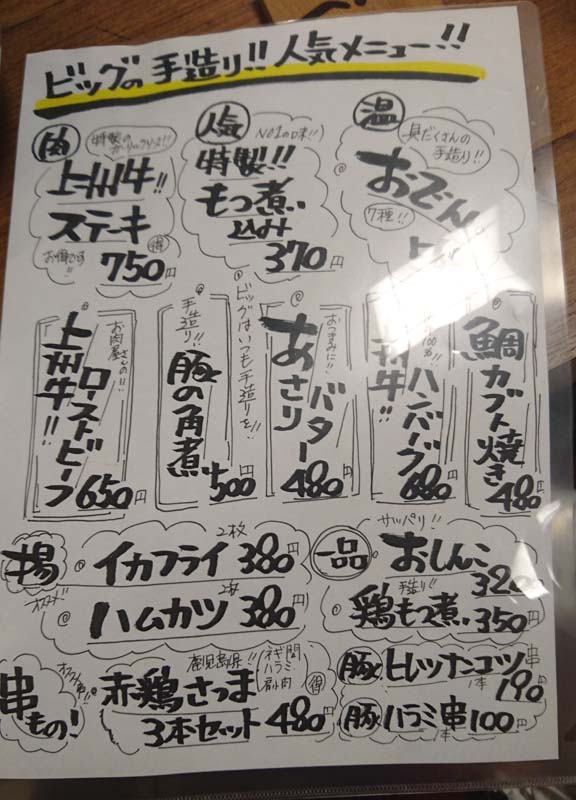 ビッグの手造り!! 人気メニュー!!
肉
特製のガーリックソース!!
上州牛!!
ステーキ
お得です!!
750円
得
人気
NO1の味!!
特製!!
もつ煮
込み
370円
温
具だくさんの
手造り!!
おでん
7種!!
お肉屋さんの!!
上州牛!!
ローストビーフ
650円
手造り!!
豚の角煮
500円
ビッグはいつも手造りを!!
おつまみに!!
あさり
バター
480円
100%!!
州牛!!
ハンバーグ
680円
鯛カブト焼き
480円
揚
イカフライ 2枚 380円
オススメ
ハムカツ 2枚 380円
一品
サッパリ!!
おしんこ
320円
手造り!!
鶏もつ煮 350円
串もの!
オススメ串!!
鹿児島県!!
赤鶏さつま
ネギ間
ハラミ
肩小肉
得
3本セット 480円
豚 ヒレッナンコツ串
1本 190円
豚 ハラミ串 1本 100円